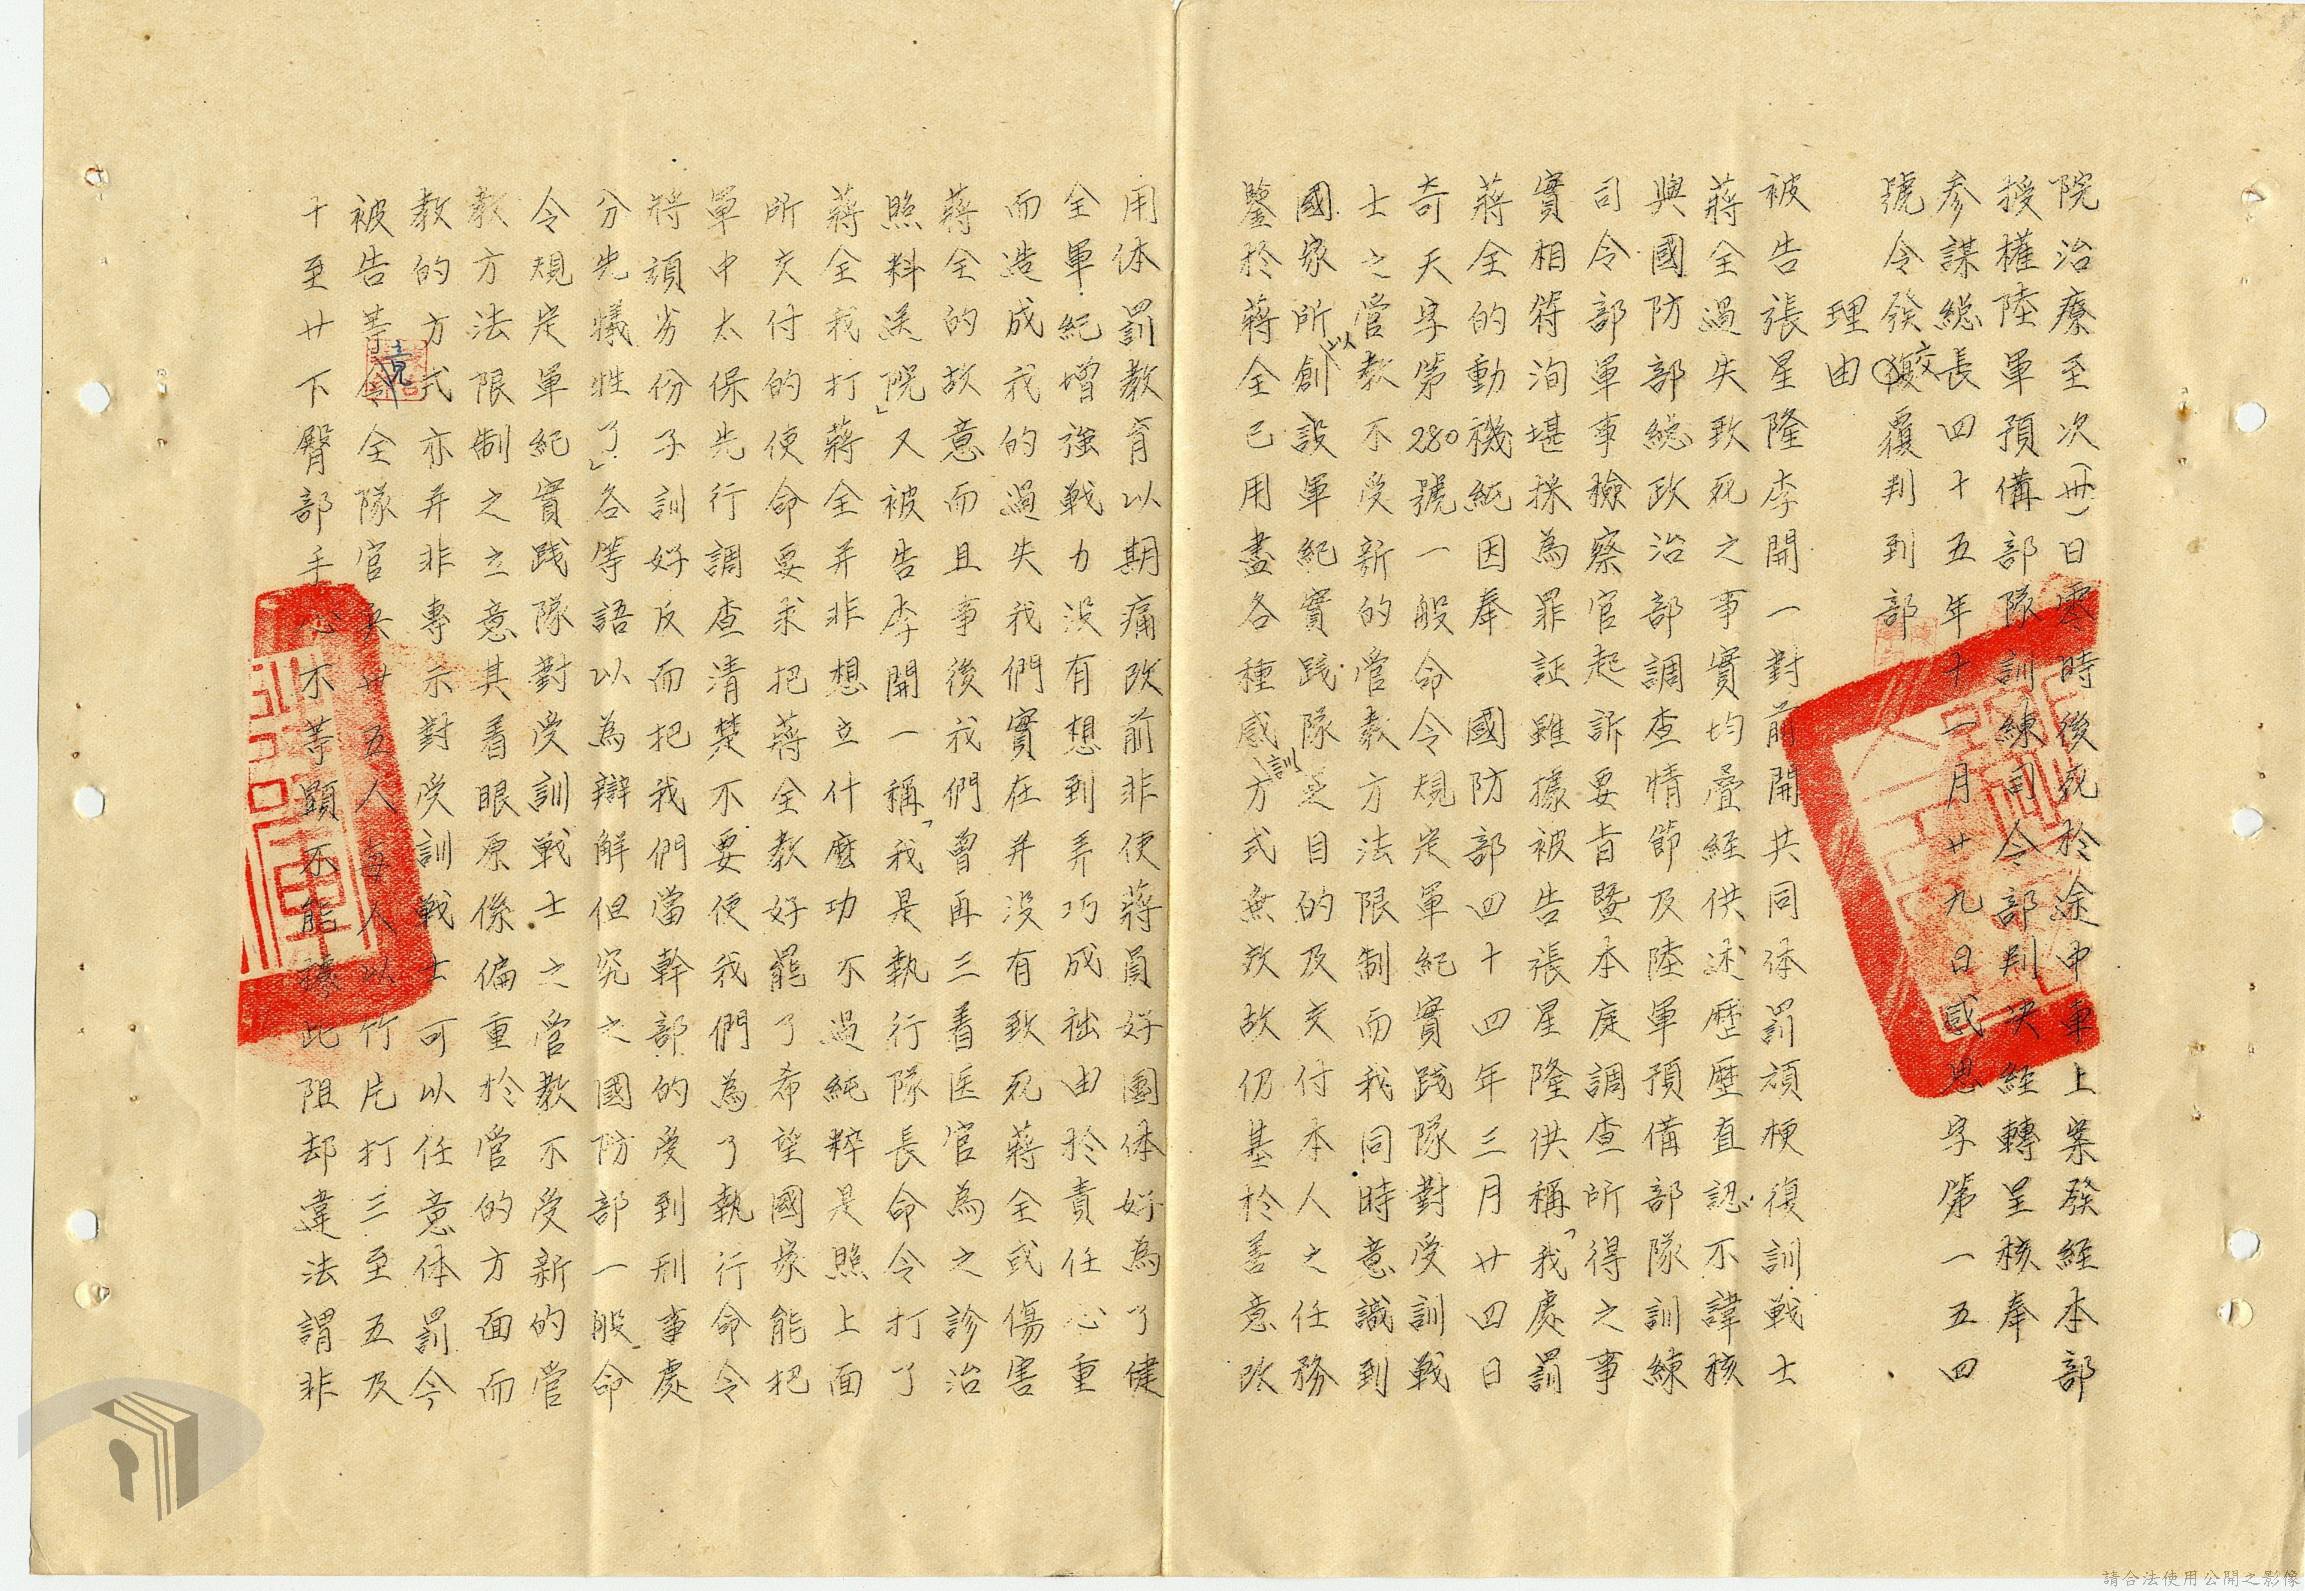 院治療至次(卅)日零時後死於途中車上案發経本部
授權陸軍預備部隊訓練司令部判决経轉呈核奉
参謀総長四十五年十一月廿九日感思字第一五四
號令發交覆判到部
理由
被告張星隆李開一對前開共同体罰頑梗復訓戦士
蔣全過失致死之事實均疊経供述歷歷直認不諱核
與國防部総政治部調查情節及陸軍預備部隊訓練
司令部軍事檢察官起訴要旨暨本庭調查所得之事
實相符洵堪採為罪証雖據被告張星隆供稱「我處罰
蔣全的動機純因奉 國防部四十四年三月廿四日
奇天字第280號一般命令規定軍紀實践隊對受訓戦
士之管教不受新的管教方法限制而我同時意識到
國家所以創設軍紀實践隊訓之目的及交付本人之任務
鑒於蔣全已用盡各種感方式無效故仍基於善意改
用体罰教育以期痛改前非使蔣員好團体好為了健
全軍紀增強戦力没有想到弄巧成拙由於責任心重
而造成我的過失我們實在并没有致死蔣全或傷害
蔣全的故意而且事後我們曾再三着医官為之診治
照料送院」又被告李開一稱「我是執行隊長命令打了
蔣全我打蔣全并非想立什麼功不過純粹是照上面
所交付的使命要求把蔣全教好罷了希望國家能把
軍中太保先行調查清楚不要使我們為了執行命令
將頑劣份子訓好反而把我們當幹部的受到刑事處
分先犧牲了」各等語以為辯解但究之國防部一般命
令規定軍紀實践隊對受訓戦士之管教不受新的管
教方法限制之立意其着眼原係偏重於管的方面而
教的方式亦并非專示對受訓戦士可以任意体罰今
被告等竟令全隊官兵廿五人每人以竹片打三至五及
十至廿下臀部手心不等顯不能據此阻却違法謂非
請合法使用公開之影像